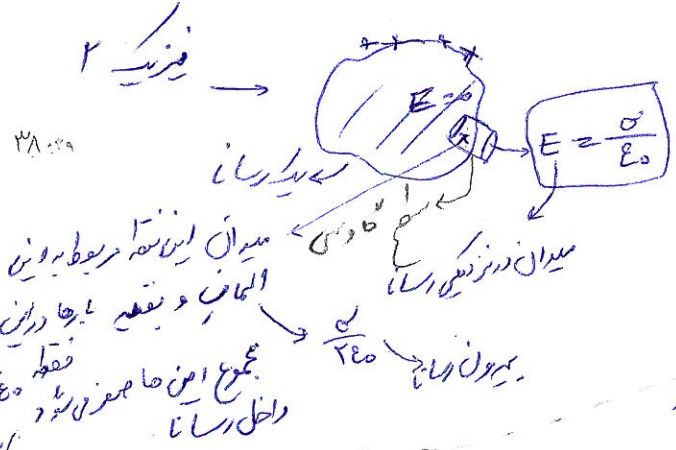 فیزیک ۲
+ + + +
E = 0
E = σ/ε₀
۳۸:۰۹
یک رسانا
سطح گاوسی
میدان در نزدیکی رسانا
میدان این نقطه مربوط به این
المان و بقیه بارها در این
نقطه
σ/۲ε₀
بیرون رسانا
مجموع این ها صفر می شود
داخل رسانا